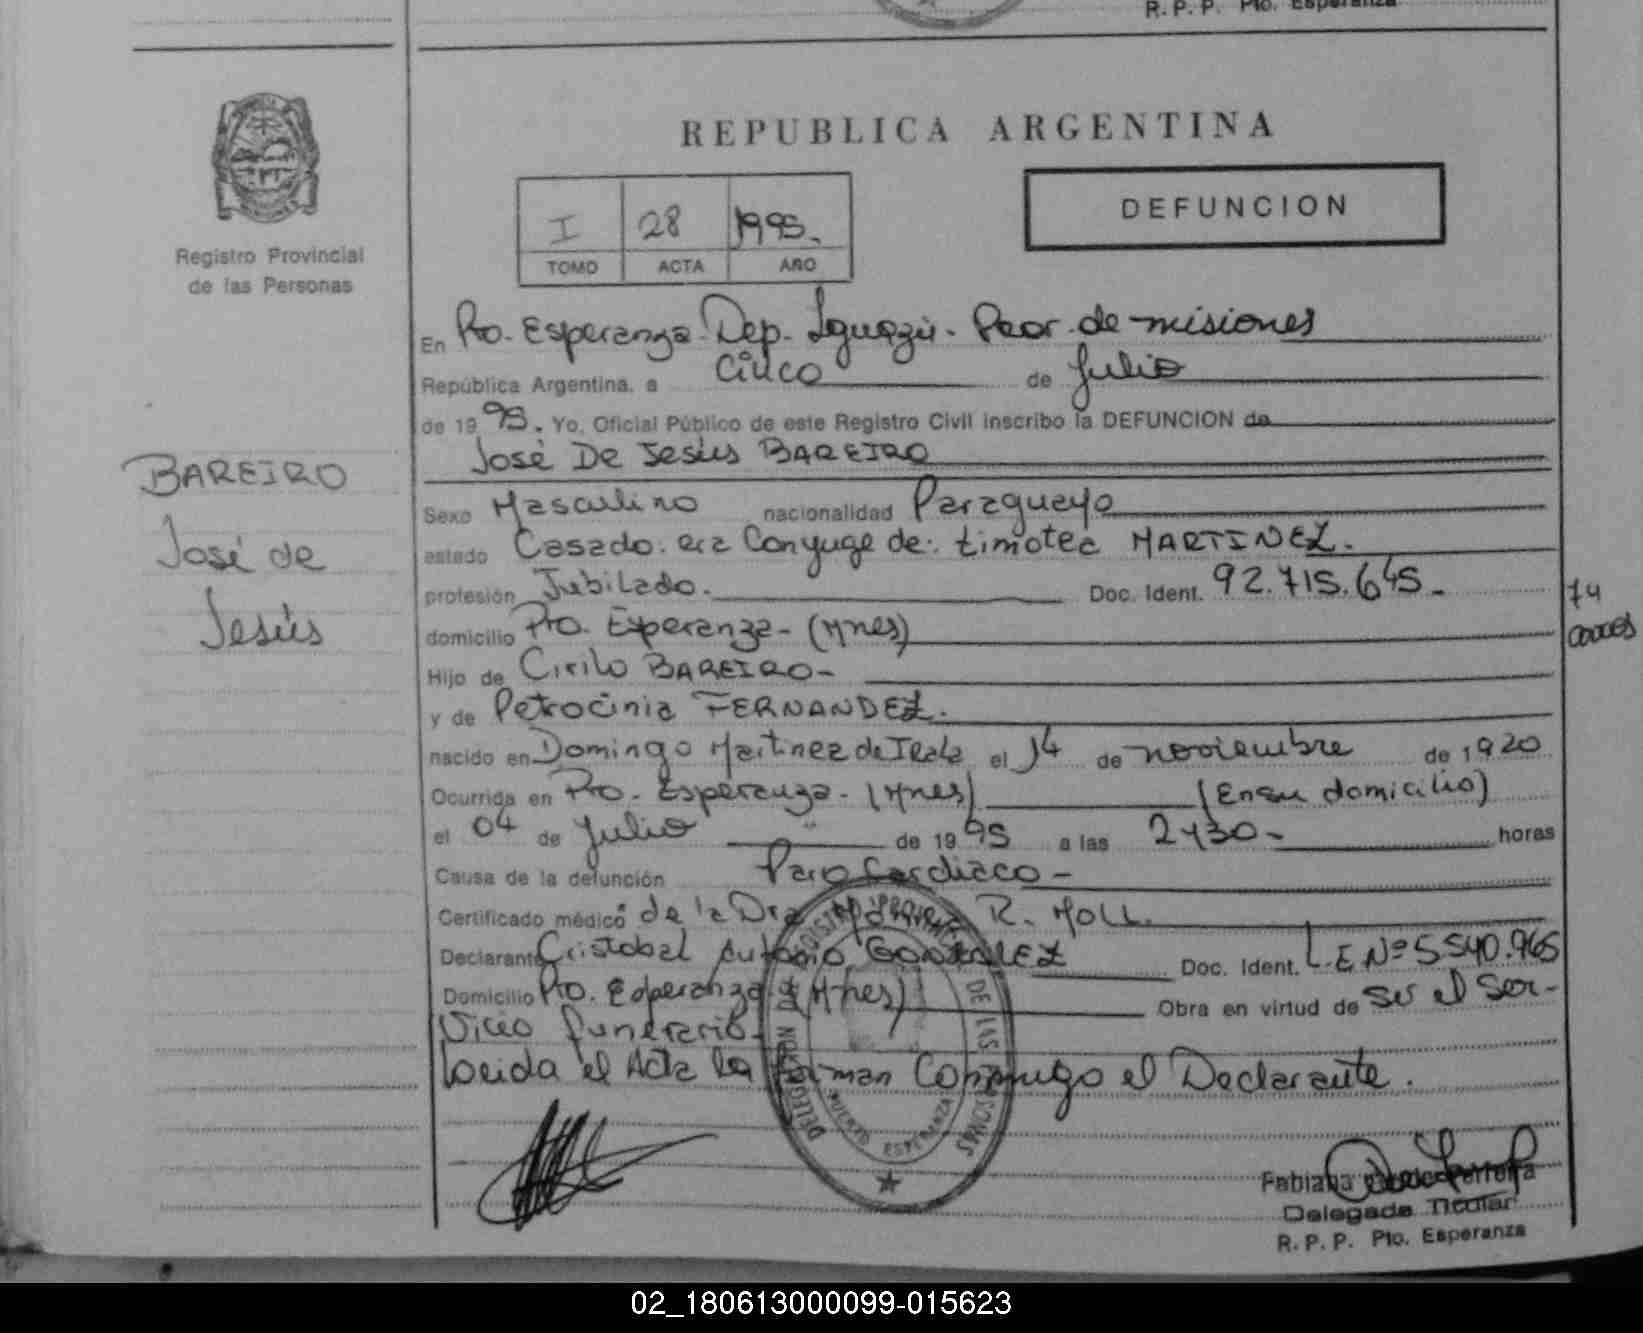 R. P. P. Pto. Esperanza
REPUBLICA ARGENTINA
DEFUNCION
I 28 1995.
TOMO ACTA AÑO
Registro Provincial
de las Personas
BAREIRO
José de
Jesús
En Pto. Esperanza Dep. Iguazú. Pcor. de misiones
República Argentina, a Cinco de Julio
de 19 95. Yo, Oficial Público de este Registro Civil inscribo la DEFUNCION de
José De Jesús BAREIRO
Sexo Masculino nacionalidad Paraguayo
estado Casado: era Conyuge de: timotea MARTINEZ.
profesión Jubilado. Doc. Ident. 92.715.645.
74
domicilio Pto. Esperanza - (Mnes)
Hijo de Cirilo BAREIRO-
y de Petrocinia FERNANDEZ.
nacido en Domingo Martinez de Irala el 14 de noviembre de 1920
Ocurrida en Pto. Esperanza - (Mnes) (En su domicilio)
el 04 de Julio de 19 95 a las 2430- horas
Causa de la defunción Paro Cardiaco -
Certificado médico de la Dra R. MOLL.
Declarante Cristobal Antonio GONZALEZ Doc. Ident. L.E Nº 5.540.965
Domicilio Pto. Esperanza (Mnes) Obra en virtud de ser el Ser-
vicio funerario.
Leida el Acta la firman Conmigo el Declarante.
DELEGACION DE LAS PERSONAS
PUERTO ESPERANZA
Fabiana
Delegada Titular
R. P. P. Pto. Esperanza
02_180613000099-015623